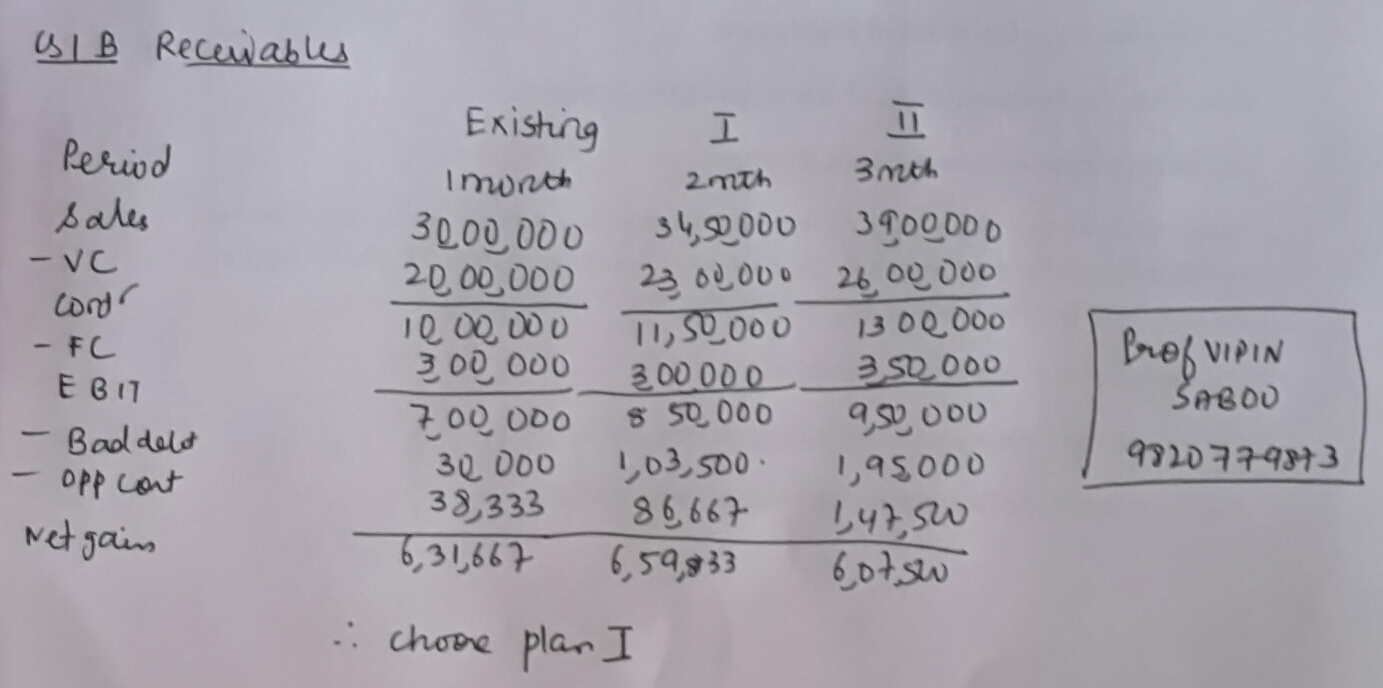 Q1B Receivables
Existing I II
Period 1 month 2 mth 3 mth
Sales 30,00,000 34,50,000 39,00,000
- VC 20,00,000 23,00,000 26,00,000
Contr 10,00,000 11,50,000 13,00,000
- FC 3,00,000 3,00,000 3,50,000
EBIT 7,00,000 8,50,000 9,50,000
- Bad debt 30,000 1,03,500 1,95,000
- Opp cost 38,333 86,667 1,47,500
Net gains 6,31,667 6,59,833 6,07,500
∴ choose plan I
Prof VIPIN
SABOO
9820779873